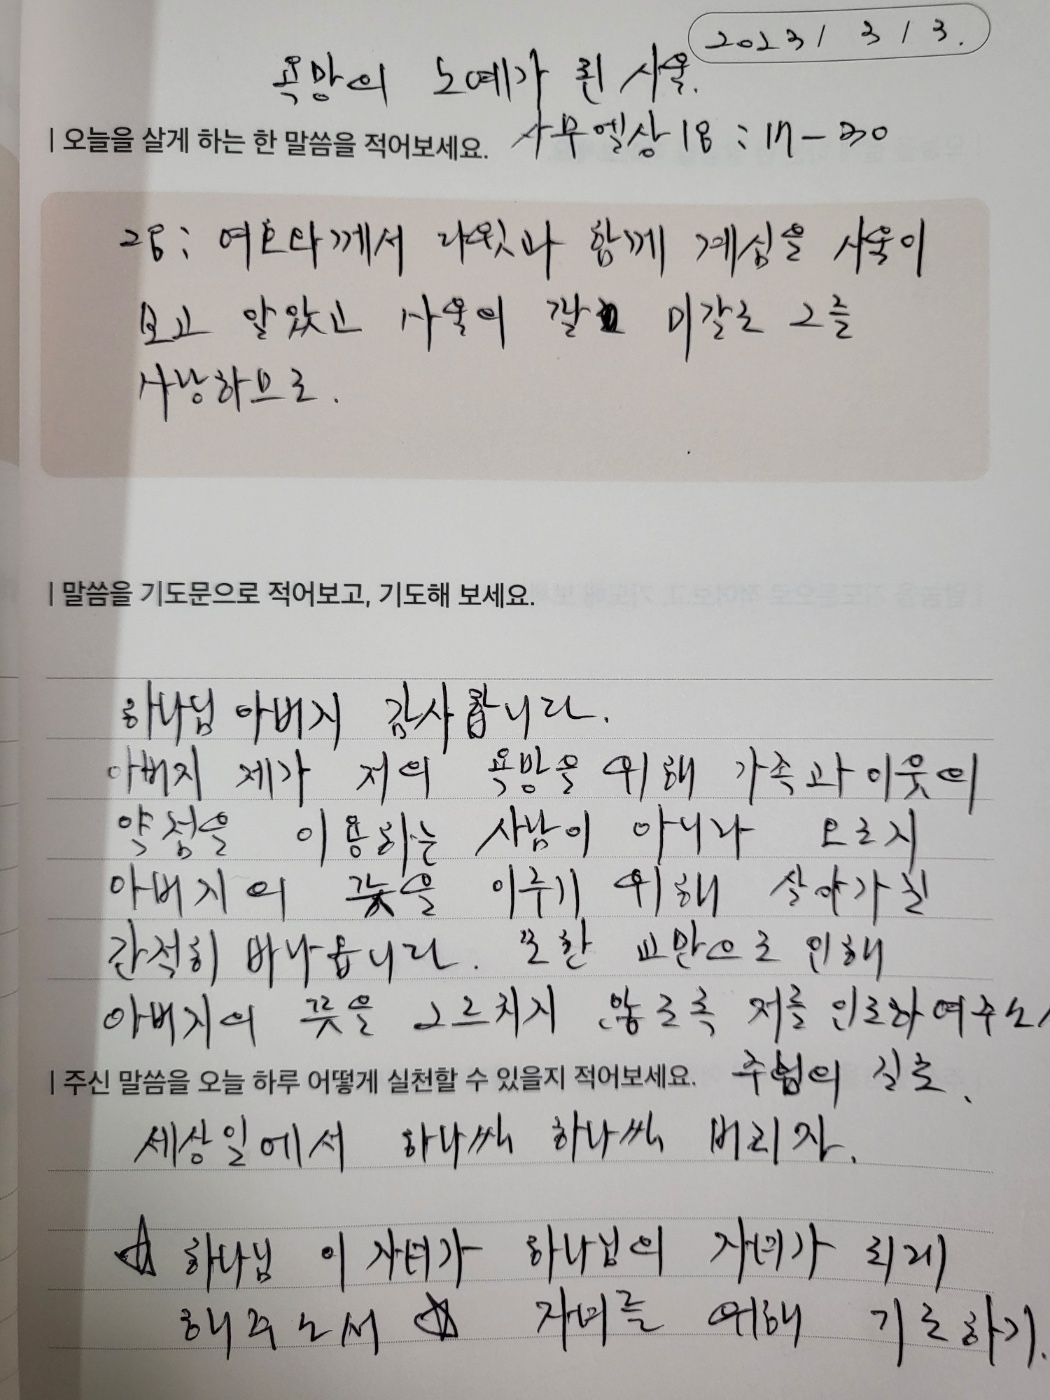 2023/ 3/ 3.
욕망의 노예가 된 사울.
| 오늘을 살게 하는 한 말씀을 적어보세요. 사무엘상 18 : 17 - 30
28 : 여호와께서 다윗과 함께 계심을 사울이
보고 알았고 사울의 딸 미갈도 그를
사랑하므로.
| 말씀을 기도문으로 적어보고, 기도해 보세요.
하나님 아버지 감사합니다.
아버지 제가 저의 욕망을 위해 가족과 이웃의
약점을 이용하는 사람이 아니라 오로지
아버지의 뜻을 이루기 위해 살아가길
간절히 바라옵니다. 또한 교만으로 인해
아버지의 뜻을 그르치지 않도록 저를 인도하여주소서
| 주신 말씀을 오늘 하루 어떻게 실천할 수 있을지 적어보세요. 주님의 길로.
세상일에서 하나씩 하나씩 버리자.
☆ 하나님 이 자녀가 하나님의 자녀가 되게
해주소서 ☆ 자녀를 위해 기도하기.